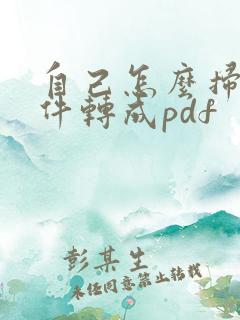 自己怎麼掃
件轉成pdf
彭某生
未经同意禁止转载